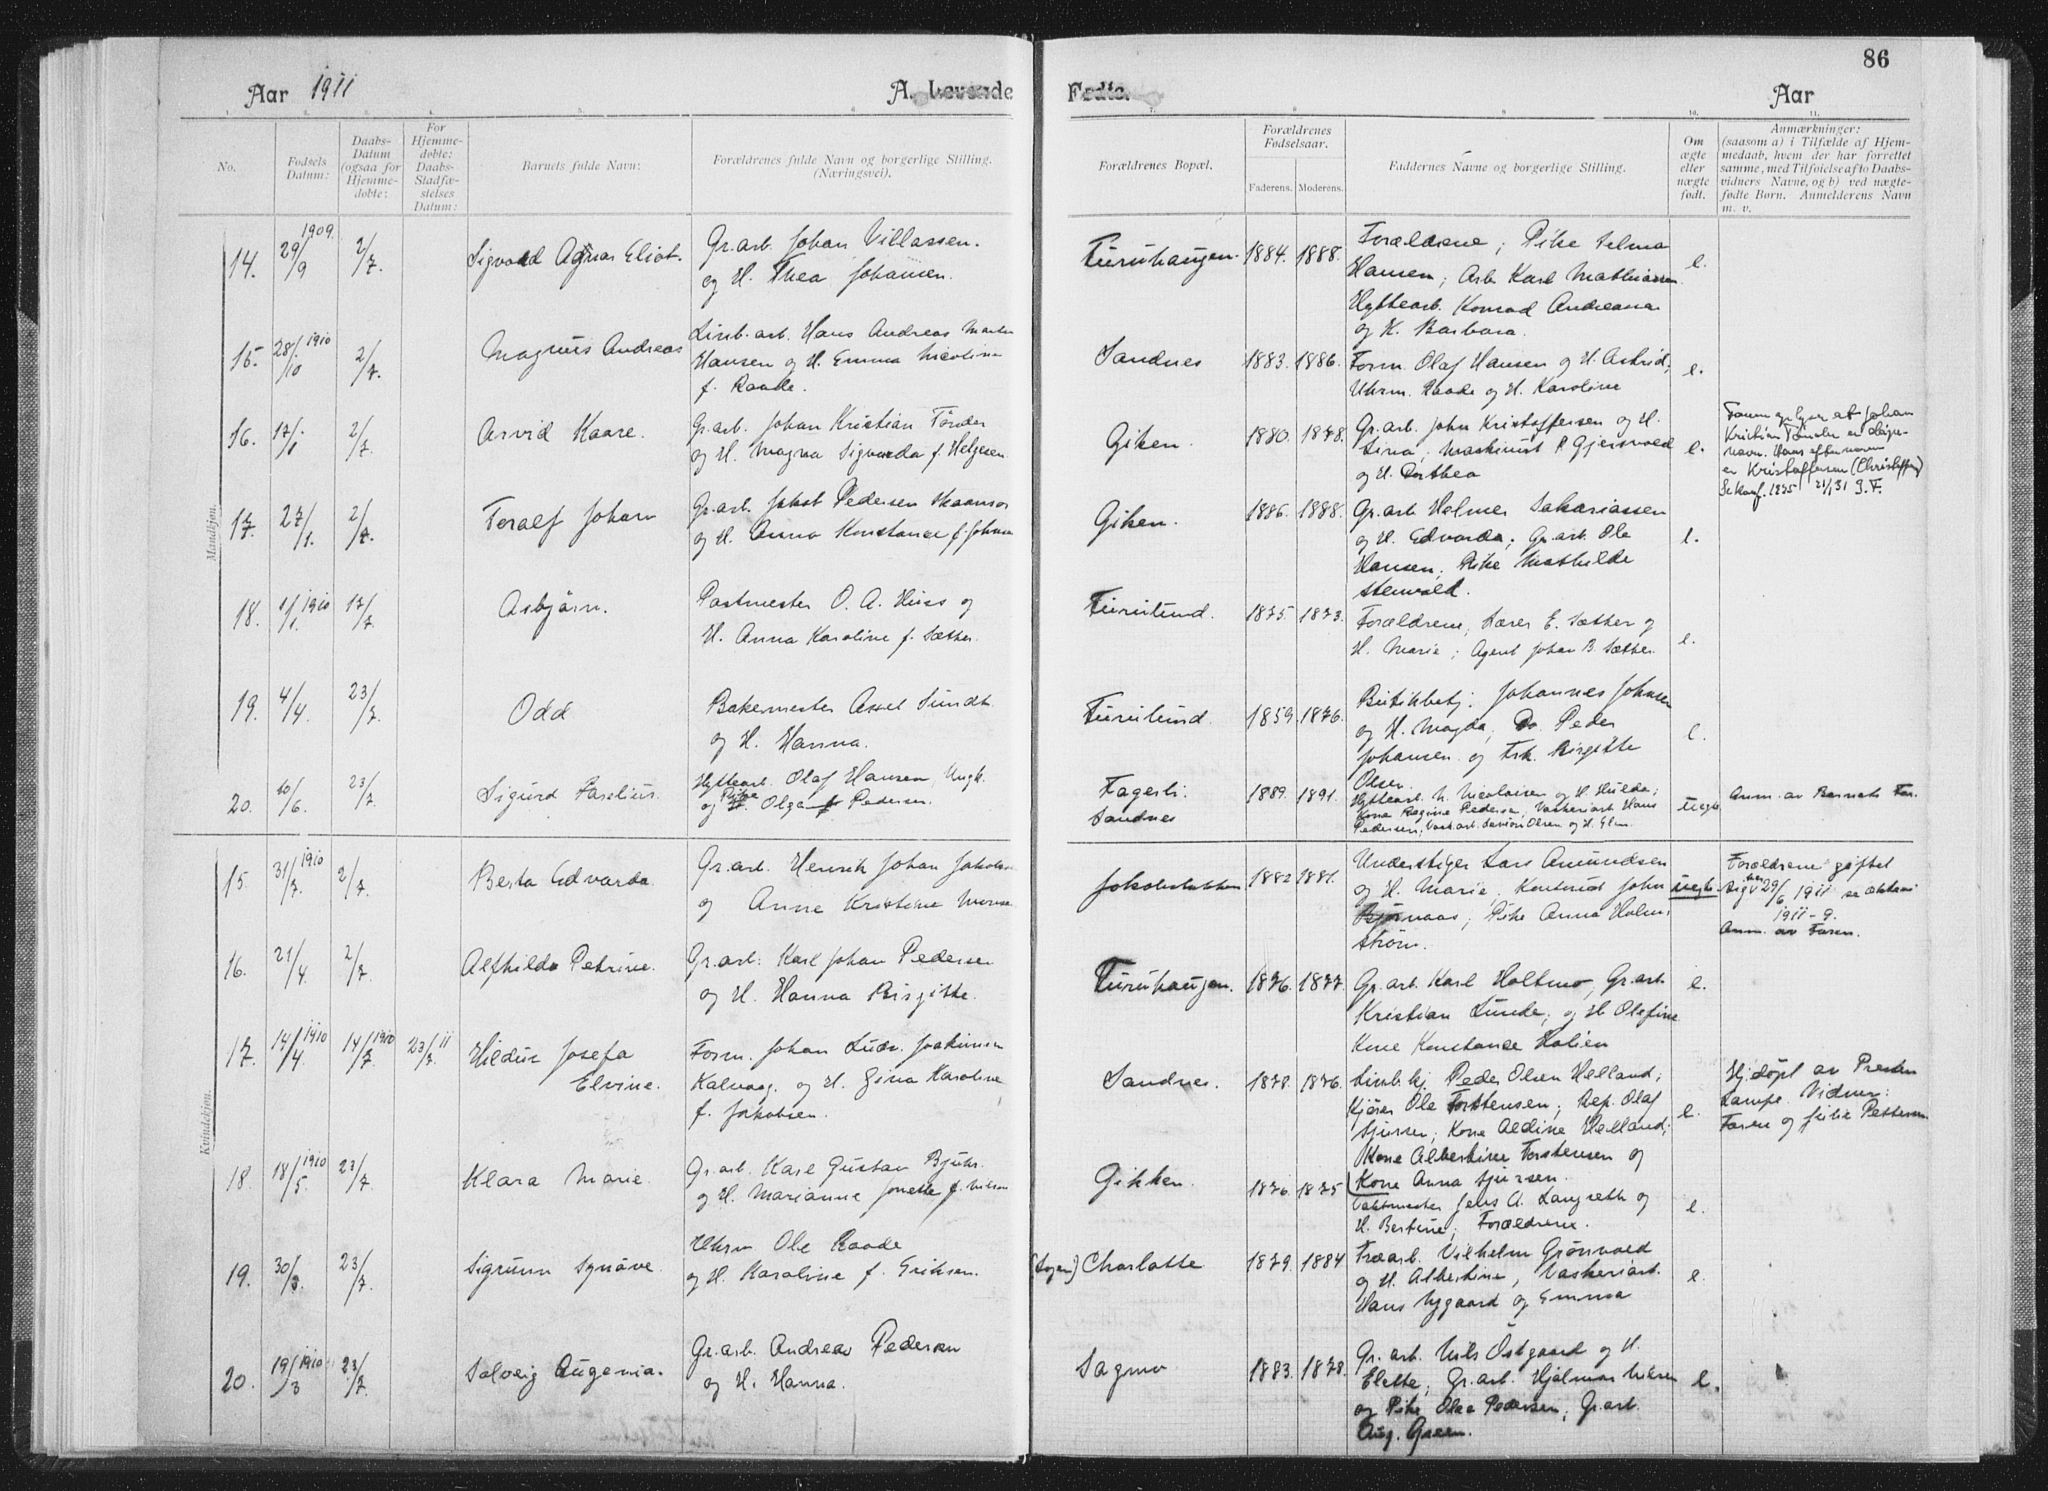 86
Aar 1911 A. Levende Fødte. Aar
1. 2. 3. 4. 5. 6. 7. 8. 9. 10. 11.
No.
Fødsels
Datum:
Daabs-
Datum
(ogsaa for
Hjemme-
døbte:
For
Hjemme-
døbte:
Daabs-
Stadfæ-
stelses
Datum:
Barnets fulde Navn:
Forældrenes fulde Navn og borgerlige Stilling.
(Næringsvei).
Forældrenes Bopæl.
Forældrenes
Fødselsaar.
Faderens. Moderens.
Faddernes Navne og borgerlige Stilling.
Om
ægte
eller
uægte
født.
Anmærkninger:
(saasom a) i Tilfælde af Hjem-
medaab, hvem der har forrettet
samme, med Tilføielse af to Daabs-
vidners Navne, og b) ved uægte-
fødte Børn. Anmelderens Navn
m. v.
Mandkjøn.
14. 29/9 1909 2/7. Sigvald Agnar Eliot.
Gr.arb. Johan Villassen.
og H. Thea Johansen.
Furuhaugen. 1884. 1888.
Forældrene; Pike Selma
Hansen; Arb. Karl Mathiassen
Hyttearb. Konrad Andreassen
og K. Barbara.
e.
15. 28/10 1910 2/7. Magnus Andreas
Linb.arb. Hans Andreas Martin
Hansen og H. Emma Nicoline
f. Raade.
Sandnes 1883. 1886.
Form. Olaf Hansen og H. Astrid;
Uhrm. Raade og H. Karoline
e.
16. 17/1 2/7. Arvid Kaare.
Gr.arb. Johan Kristian Tönder
og H. Magna Sigvarda f. Helgesen
Giken. 1880. 1878.
Gr.arb. John Kristoffersen og H.
Lina; Maskinist P. Gjersvold
og H. Dorthea
e.
Faren oplyser at Johan
Kristian Tønder er døpe-
navn. Hans efternavn
er Kristoffersen (Christoffers)
Se Konf. 1895 21/1 31 S.F.
17. 27/1. 2/7. Toralf Johan
Gr.arb. Jakob Pedersen Skaansø
og H. Anna Konstanse f. Johnsen
Giken. 1886. 1888.
Gr.arb Helmer Sakariassen
og H. Edvarda; Gr.arb. Ole
Hansen; Pike Mathilde
Stenvold.
e.
18. 1/1. 1910 17/7. Asbjörn.
Postmester O. A. Huss og
H. Anna Karoline f. Sæther.
Furulund. 1875. 1873.
Forældrene; Lærer E. Sæther og
H. Marie; Agent Johan B. Sæther
e.
19. 4/4. 23/7. Odd
Bakermester Axel Sundt
og H. Hanna.
Furulund. 1859. 1876.
Butikbetj. Johannes Johnsen
og H. Magda; Do. Peder
Johansen og Frk. Birgitte
Olsen.
e.
20. 10/6. 23/7. Sigurd Parelius.
Hyttearb. Olaf Hansen, Ungk.
og Pike Olga Pedersen.
Fagerli.
Sandnes
1889. 1891.
Hyttearb. N. Nicolaisen og H. Hulda;
Kone Regine Pedersen, Vaskeriarb. Hans
Pedersen, Vaskarb. Olsen og H. Elen.
uegte
Anm. av Barnets Far.
Kvindekjøn.
15. 31/7. 1910 2/7. Berta Edvarda.
Gr.arb. Henrik Johan Jakobsen
og Anne Kristine
Jakobsbakken 1882 1881.
Understiger Lars Amundsen
og H. Marie, Kontorist John
Björnaas; Pike Anna Holm-
strøm.
uegte
Forældrene giftet
29/6 1911 se ektevi
1911 - 9.
Anm. av Faren.
16. 21/4. 2/7. Alfhilda Petrine.
Gr.arb. Karl Johan Pedersen
og H. Hanna Birgitte.
Furuhaugen. 1876. 1877.
Gr.arb. Karl Holtmo, Gr.arb.
Kristian Lunde; og H. Olefine
Kone Konstanse Holien
e.
17. 14/4. 1910 14/7. 1910 23/7. 11 Hildur Josefa
Elvine.
Form. Johan Ludv. Joakimsen
Kalvaag. og H. Gina Karoline
f. Jakobsen.
Sandnes. 1878. 1876.
Linb.bj. Peder Olsen Helland;
Kjører Ole Torstensen; Rep. Olaf
Sjursen; Kone Aldine Helland;
Kone Albertine Torstensen og
Kone Anna Sjursen.
e.
Hj.døpt av Presten
Lampe. Vidner:
Faren og Julie Pettersen
18. 18/5. 1910 23/7. Klara Marie.
Gr.arb. Karl Gustav Bjuhr.
og H. Marianne Jonette f. Nilsen
Gikken. 1876. 1875
Vaktmester Jens A. Langseth og
H. Bertine; Forældrene.
e.
19. 30/3. 23/7. Sigrunn Synøve.
Uhrm Ole Raade
og H. Karoline f. Eriksen.
Charlotte 1879. 1884
Træarb. Vilhelm Grønvold
og H. Albertine, Vaskeriarb.
Hans Nygaard og Emma
e.
20. 19/3 1910 23/7. Solveig Eugenia.
Gr.arb. Andreas Pedersen
og H. Hanna.
Sagmo 1883. 1878.
Gr. arb. Nils Östgaard og H.
Elette; Gr.arb. Hjalmar Nilsen
og Pike Olea Pedersen; Gr.arb.
Aug. Green.
e.